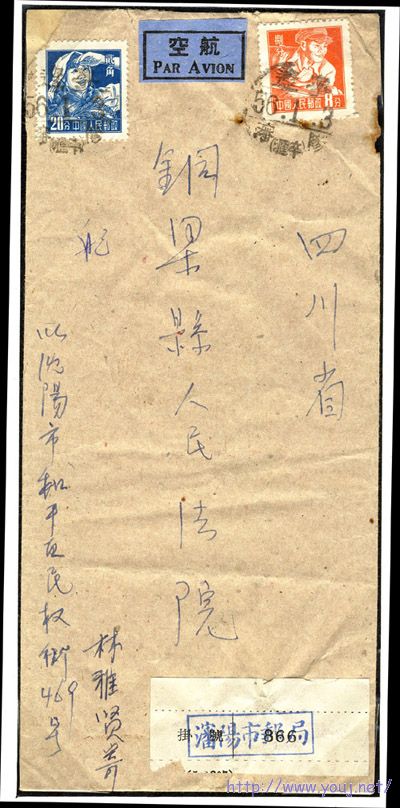 航空
PAR AVION
貳角
20分 中國人民郵政
捌分
中國人民郵政 8分
四川省
銅梁縣人民法院
航
沈陽市和平区民权街469号
林雅贤寄
掛號 866
瀋陽市郵局
http://www.youj.net/